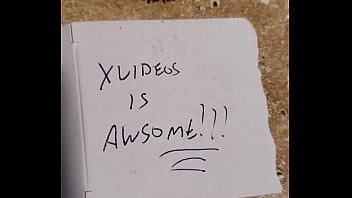 XVIDEOS
IS
AWSOME!!!